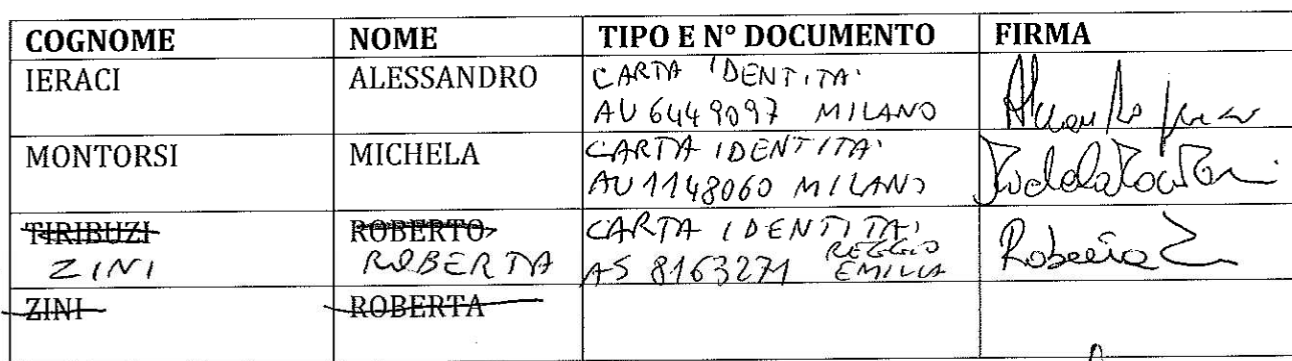 COGNOME NOME TIPO E N° DOCUMENTO FIRMA
IERACI ALESSANDRO CARTA IDENTITA'
AU 6449097 MILANO
MONTORSI MICHELA CARTA IDENTITA'
AU 1148060 MILANO
TIRIBUZI ROBERTO CARTA IDENTITA'
ZINI ROBERTA AS 8163271 REGGIO EMILIA Roberta Z
ZINI ROBERTA